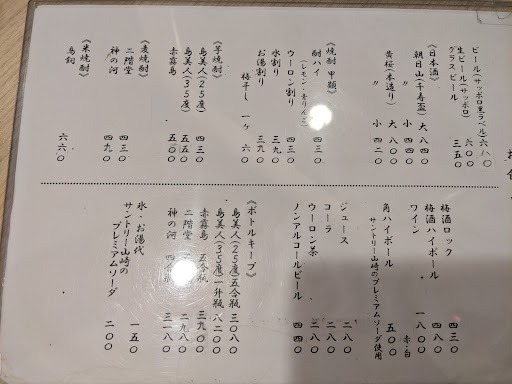 ビール(サッポロ黒ラベル) 六八〇
生ビール(サッポロ) 六〇〇
グラスビール 三五〇
《日本酒》
朝日山(千寿盃) 大 八四〇
〃 小 四四〇
黄桜(本造り) 大 八〇〇
〃 小 四二〇
《焼酎 甲類》
酎ハイ 四三〇
(レモン・青りんご)
ウーロン割り 四三〇
水割り 三九〇
お湯割り 三九〇
梅干し 一ケ 六〇
《芋焼酎》
島美人(25度) 四三〇
島美人(35度) 五五〇
赤霧島 五〇〇
《麦焼酎》
二階堂 四三〇
神の河 四九〇
《米焼酎》
鳥飼 六六〇
梅酒ロック 四三〇
梅酒ハイボール 四八〇
ワイン 一八〇〇
赤・白
角ハイボール 五〇〇
サントリー山崎のプレミアムソーダ使用
ジュース 二八〇
コーラ 二八〇
ウーロン茶 二八〇
ノンアルコールビール 四四〇
《ボトルキープ》
島美人(25度)五合瓶 三〇八〇
島美人(35度)一升瓶 八二〇〇
赤霧島 五合瓶 三九〇〇
二階堂 五合瓶 二九八〇
神の河 四合瓶 三一八〇
氷・お湯代 一五〇
サントリー山崎の
プレミアムソーダ 二〇〇